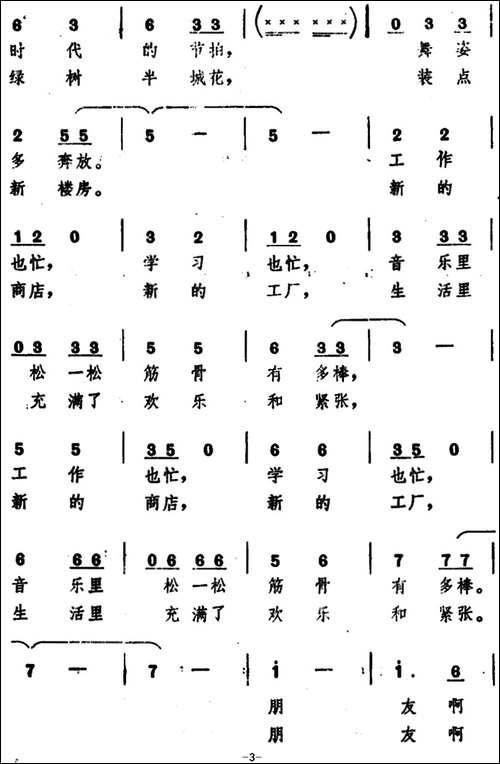 6 3 | 6 3 3 | (××× ×××) | 0 3 3
时代的节拍，舞姿
绿树半城花，装点
2 5 5 | 5 — | 5 — | 2 2
多奔放。工作
新楼房。新的
1 2 0 | 3 2 | 1 2 0 | 3 3 3
也忙，学习也忙，音乐里
商店，新的工厂，生活里
0 3 3 3 | 5 5 | 6 3 3 | 3 —
松一松筋骨有多棒，
充满了欢乐和紧张，
5 5 | 3 5 0 | 6 6 | 3 5 0
工作也忙，学习也忙，
新的商店，新的工厂，
6 6 6 | 0 6 6 6 | 5 6 | 7 7 7
音乐里松一松筋骨有多棒。
生活里充满了欢乐和紧张。
7 — | 7 — | i — | i . 6
朋友啊
朋友啊
-3-